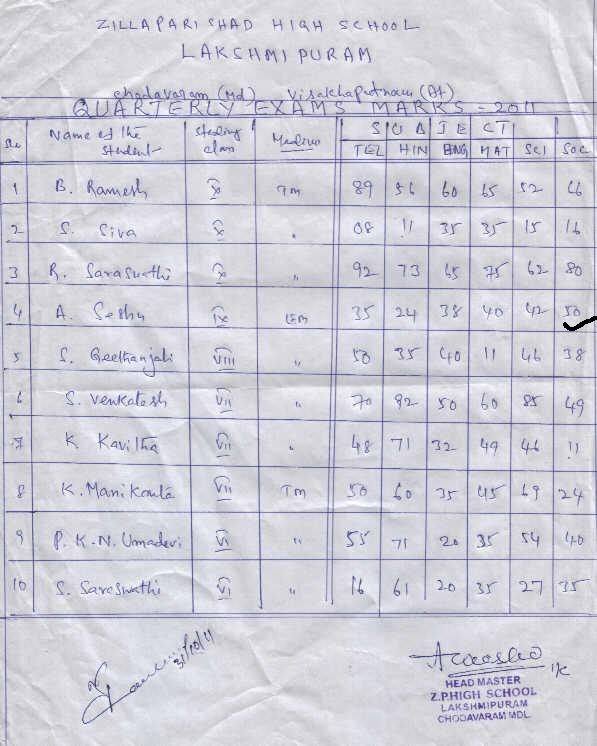 ZILLAPARISHAD HIGH SCHOOL
LAKSHMIPURAM
chodavaram (Md) Visakhapatnam (Dt)
QUARTERLY EXAMS MARKS - 2011
SUBJECT
Name of the student Studing class Medium TEL HIN ENG MAT SCI SOC
1 B. Ramesh X TM 89 56 60 65 52 66
2 S. Siva X " 08 11 35 35 15 16
3 R. Saraswathi X " 92 73 65 75 62 80
4 A. Seshu IX EM 35 24 38 40 42 50
5 S. Geethanjali VIII " 50 35 40 11 46 38
6 S. Venkatesh VII " 70 92 50 60 85 49
7 K Kavitha VII " 48 71 32 49 46 11
8 K. Manikanta VII TM 50 60 35 45 69 24
9 P. K. N. Umadevi VI " 55 71 20 35 54 40
10 S. Saraswathi VI " 16 61 20 35 27 35
31/10/11
I/C
HEAD MASTER
Z.P.HIGH SCHOOL
LAKSHMIPURAM
CHODAVARAM MDL.